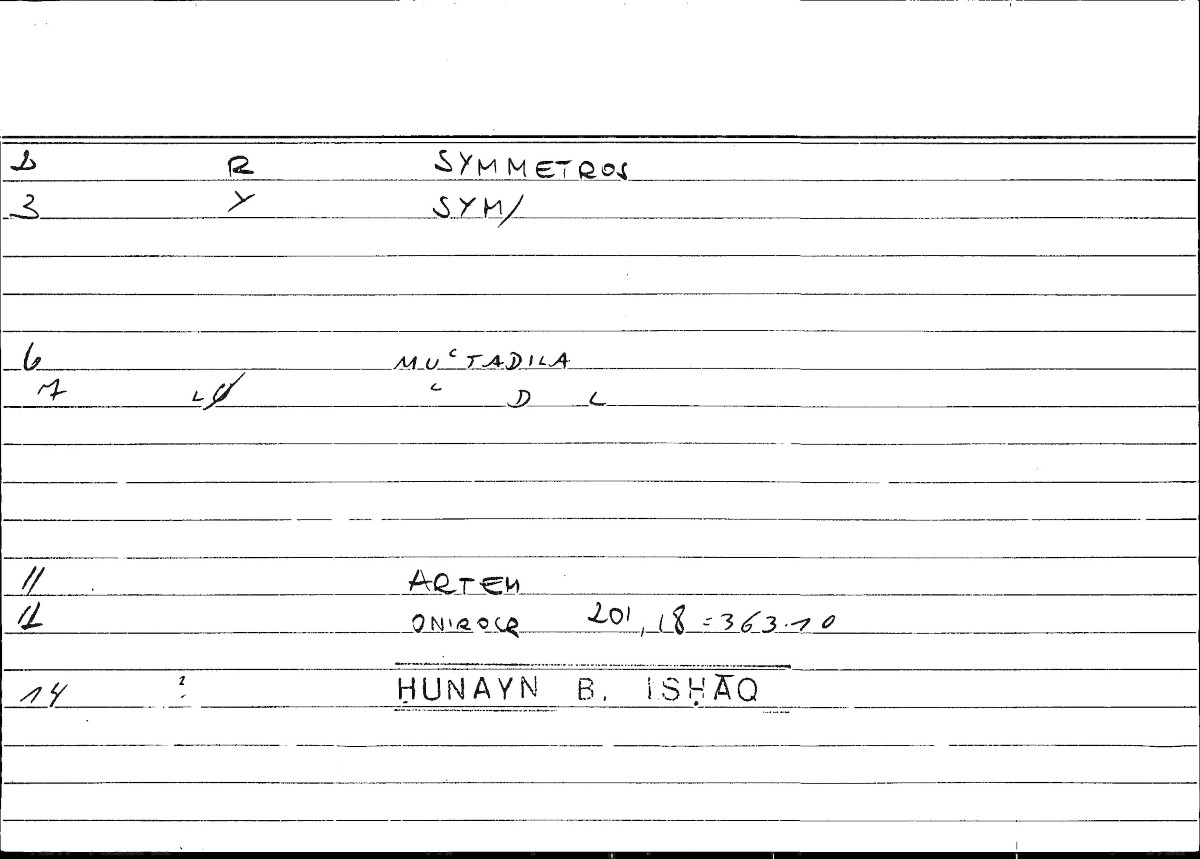 2 R SYMMETROS
3 Y SYM/
6 MUʿTADILA
7 ʿ D L
11 ARTEM
12 ONIROCR 201,18=363.10
14 : ḤUNAYN B. ISḤĀQ